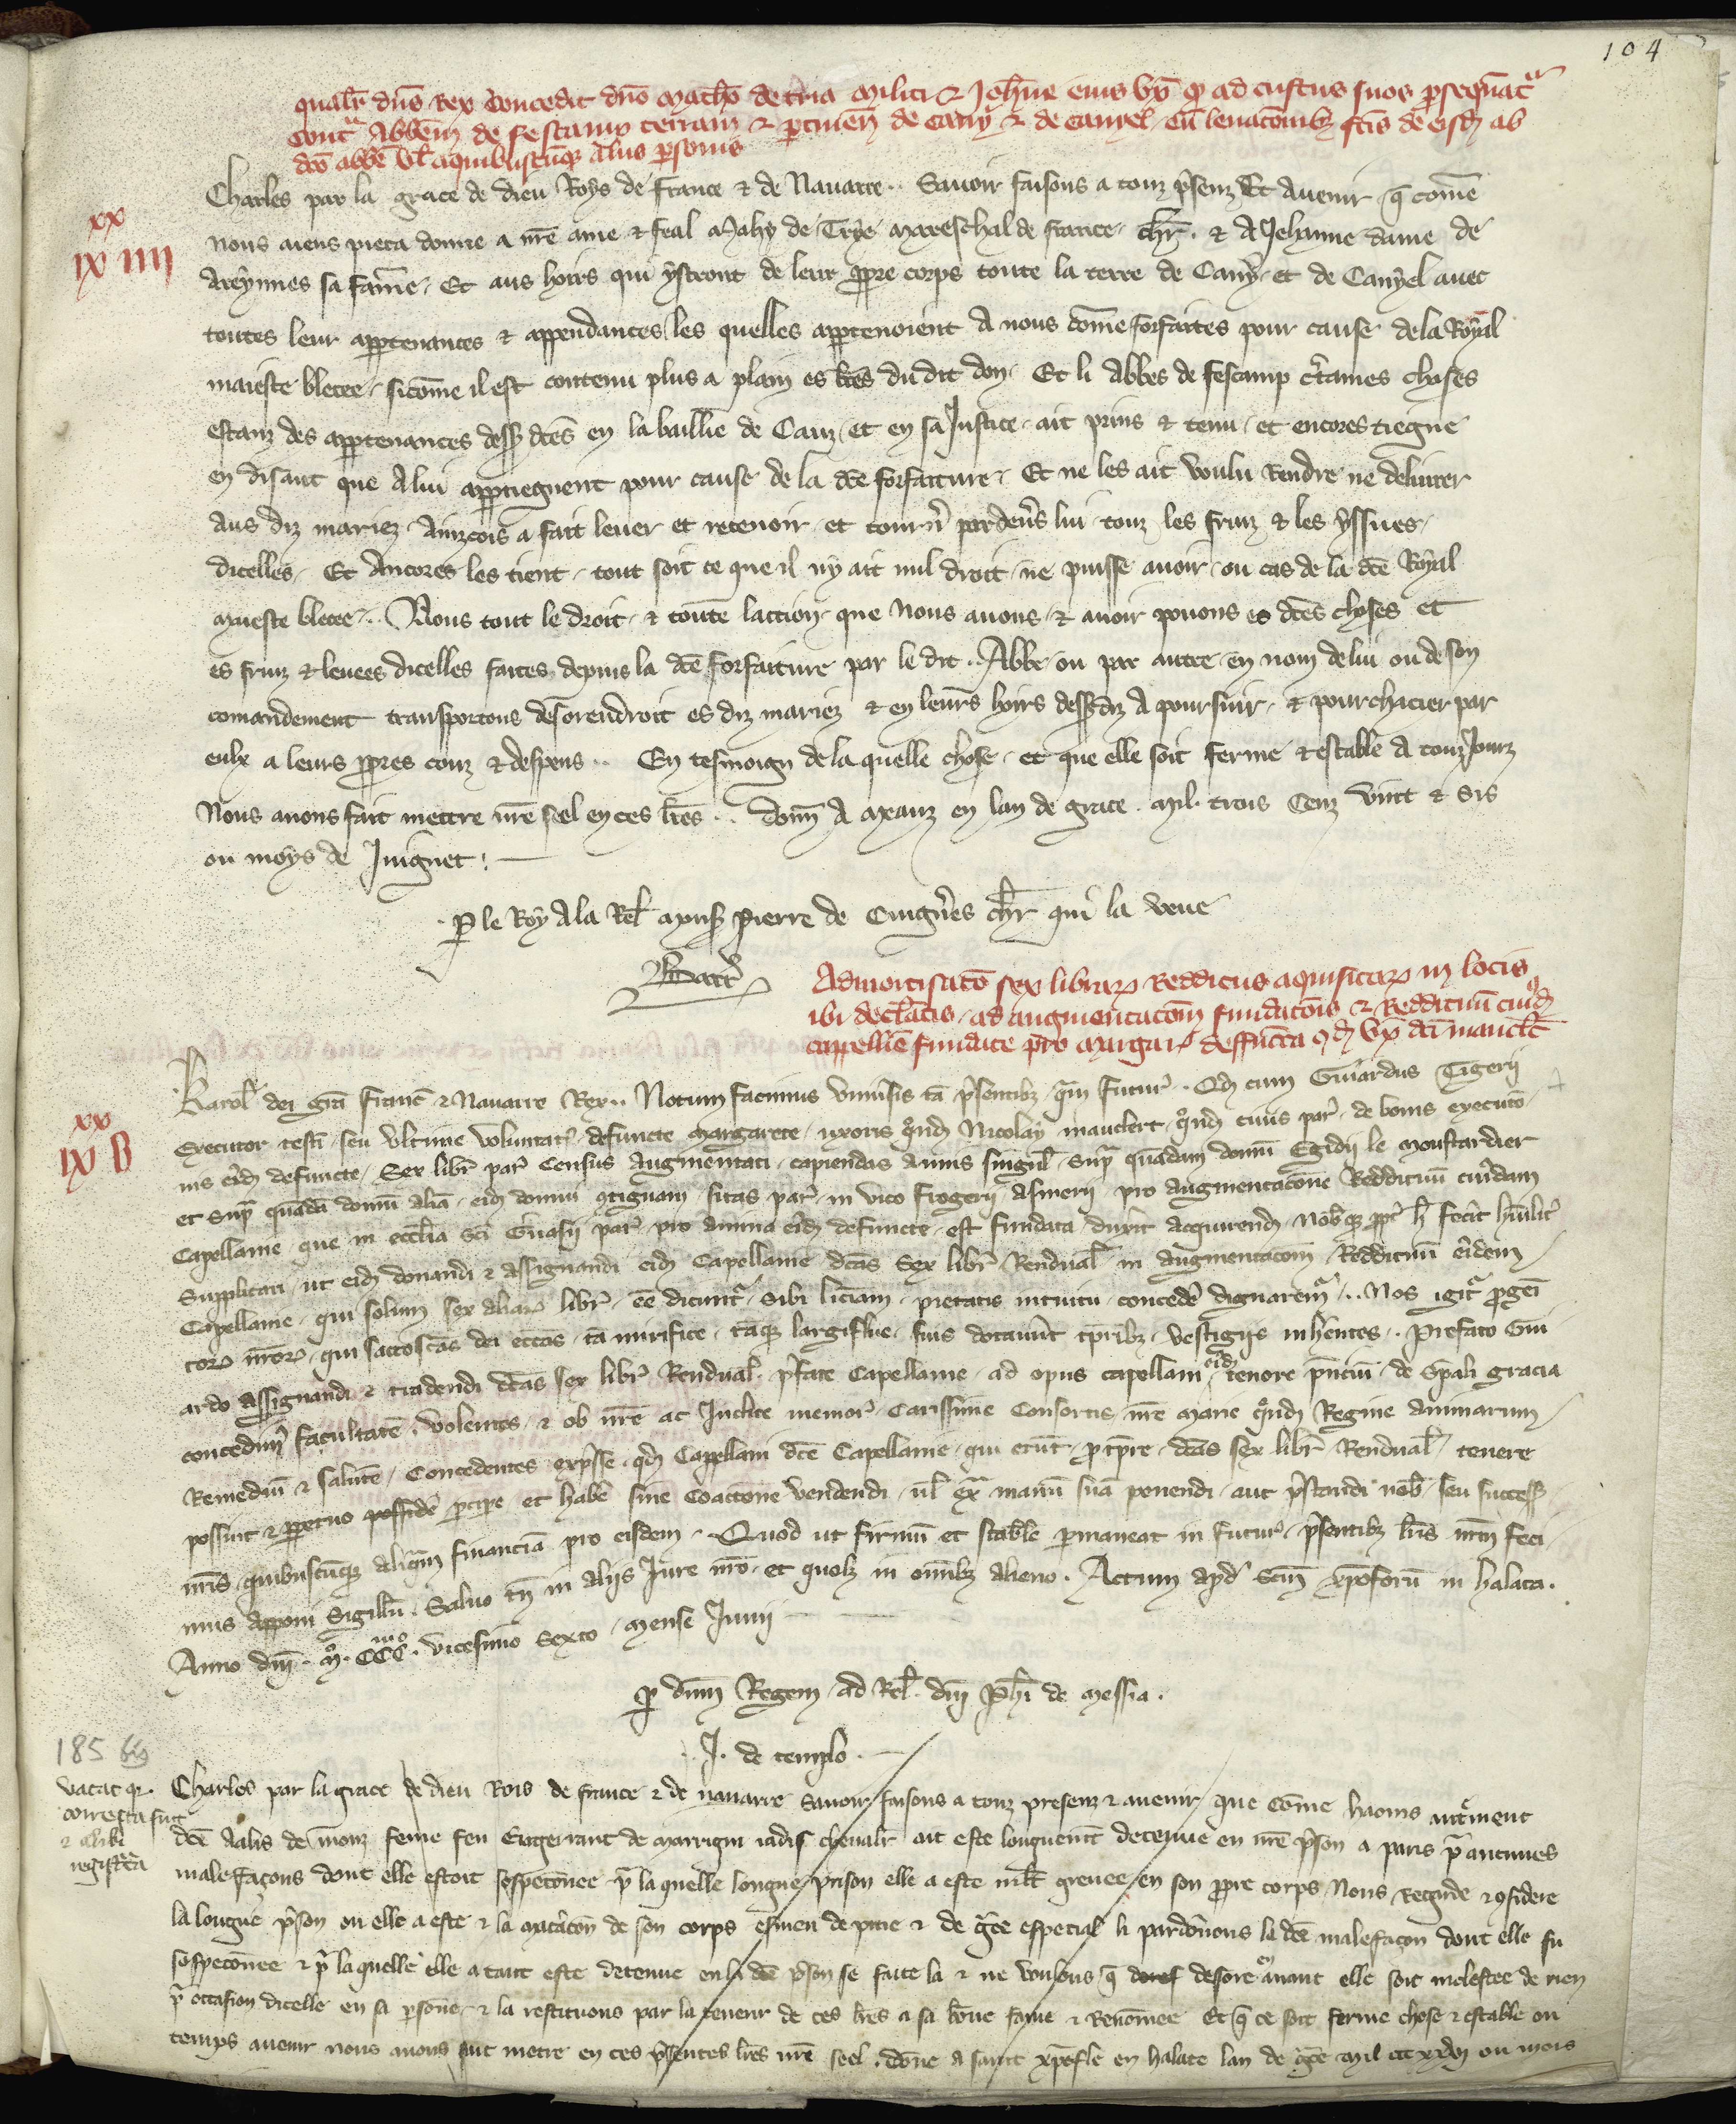 104
qualr dns Rex concedit dno Matho de tria militi & Johne eius ux q ad custus suos psequat
contra Abbem de Fescampo terram & ptinen de Cany & de Canyel cu levacoibz fcis de eisd ab
dco abbe vl a quibuscuqz aliis psonis
xx
IX IIII
Charles par la grace de dieu Roys de France & de Navarre .. Savoir faisons a touz psenz Et Avenir q come
nous aiens pieca donne a nre ame & feal Mahy de Trye Mareschal de France chr. & A Jehanne dame de
Areynnes sa fame. Et aus hoirs qui ystront de leur ppre corps toute la terre de Cany et de Canyel avec
toutes leur appartenances & appendances les quelles appartenoient A nous come forfaites pour cause de la Royal
maieste blecee sicome il est contenu plus a plain es lres du dit don. Et li Abbes de Fescamp ctaines choses
estanz des appartenances dess dces en la baillie de Caux et en sa Justice ait prins & tenu et encores tiegne
en disant que A lui apptiegnent pour cause de la dce forfaiture. Et ne les ait voulu Rendre ne delivrer
aus diz mariez Ainzcois a fait lever et retenoir et tourn pardevs lui touz les fruz & les yssues
dicelles. Et Ancores les tient tout soit ce que il ny ait nul droit ne puisse avoir ou cas de la dce Royal
maieste blecee .. Nous tout le droit & toute laction que Nous avons & avoir povons es dces choses et
es fruz & levees dicelles faites depuis la dce forfaiture par le dit .. Abbe ou par autre en nom de lui ou de son
comandement transportons desorendroit es diz mariez & en leurs hoirs dessdiz A poursuir & pourchacier par
eulx a leurs ppres couz & despens .. En tesmoign de la quelle chose et que elle soit ferme & estable A touzJours
Nous avons fait mettre nre seel en ces lres .. Donn A Meaux en lan de grace mil trois Cenz vint & sis
ou moys de Juignet
P le Roy A la Rel mons Pierre de Cuigneres chr qui la veue
Barr
Admortisatio sex librar Redditus aquisitar in locis
ibi declatis ad augmentacom fundacois & Reddituu cuiusd
capellnie fundate pro Margar deffuncta qd ux dci mauclt
xx
IX B
Karol dei gra Franc & Navarre Rex .. Notum facimus univsis ta psentibz qm futur .. Qd cum Girardus Tigerii
Executor testi seu ultime voluntat defuncte Margarete uxoris qnd Nicolay mauclert qnd civis par de bonis executo
nis eid defuncte Sex libr par Census Augmentati capiendas Annis singul supra quadam domu Egidii le moustardier
et supra quada domu alia eid domui qtiguam sitas par in vico Frogerii Asinerii pro augmentacione Reddituu cuidam
Capellanie que in ecclia sci Gvasii par pro anima eid defuncte est fundata duxit acquirend Nobqz ppt h fecit huilit
supplicari ut eid donandi & assignandi eid Capellanie dcas Sex libr Rendual in augmentacom Reddituu eidem
Capellanie qui solum sex aliar libr ee dicuntr sibi licciam pietatis intuitu conceder dignaremr .. Nos igitr pgeni
tor nror qui sacroscas dei eccas ta mirifice taqz largiflue suis dotavut tpribz vestigiis inhentes .. Prefato Gir
ardo Assignandi & tradendi dcas sex libr Rendual pfate Capellanie ad opus capellani eid tenore pntiu de spali gracia
concedim facultate volentes & ob nre ac Inclite memor Carissime Consortis nre Marie qnd Regine animarum
Remediu & salute Concedentes expsse qd Capellani dce Capellanie qui erut p tpre dcas sex libr Rendual tenere
possint & ppetuo possidere pcipe et habe sine Coaccione vendendi vl ex manu sua ponendi aut pstandi nob seu success
nris quibuscuqz aliqam financia pro eisdem Quod ut firmu et stabile pmaneat in futur psentibz lris nrm feci
mus apponi Sigillu. Salvo tn in aliis Jure nro et quolz in omibz alieno. Actum apd Scm xpoforu in halata.
Anno dni. Mo. CCCmo. vicesimo Sexto Mense Junii
P dnm Regem ad Rel. dni Phi de Messia.
J. de templo.
185 bis
vacat qr.
correcta fuit
& alibi
registrata
Charles par la grace de dieu Rois de france & de navarre savoir faisons a touz presenz & avenir que Come haouis autrement
dce Aalis de monz feme feu Engerrant de Marrigni iadis chevalr ait este longuemt detenue en nre pson a paris pr aucunes
malefacons dont elle estoit sospeconee pr la quelle longue prison elle a este mlt grevee en son ppre corps Nous Regarde & qsidere
la longue pson ou elle a este & la macacon de son corps esmeu de pitie & de gce especial li pardonons la dce malefacon dont elle fu
sospeconee & pr la quelle elle a tant este detenue en la dce pson se faite la & ne voulons q desore en avant elle soit molestee de rien
pr occasion dicelle en sa psone & la restituons par la teneur de ces lres a sa bone fame & Renomee Et q ce soit ferme chose & estable ou
temps avenir nous avons fait metre en ces psentes lres nre seel. done a saint xpofle en halate lan de gce mil ccc xxvi ou mois